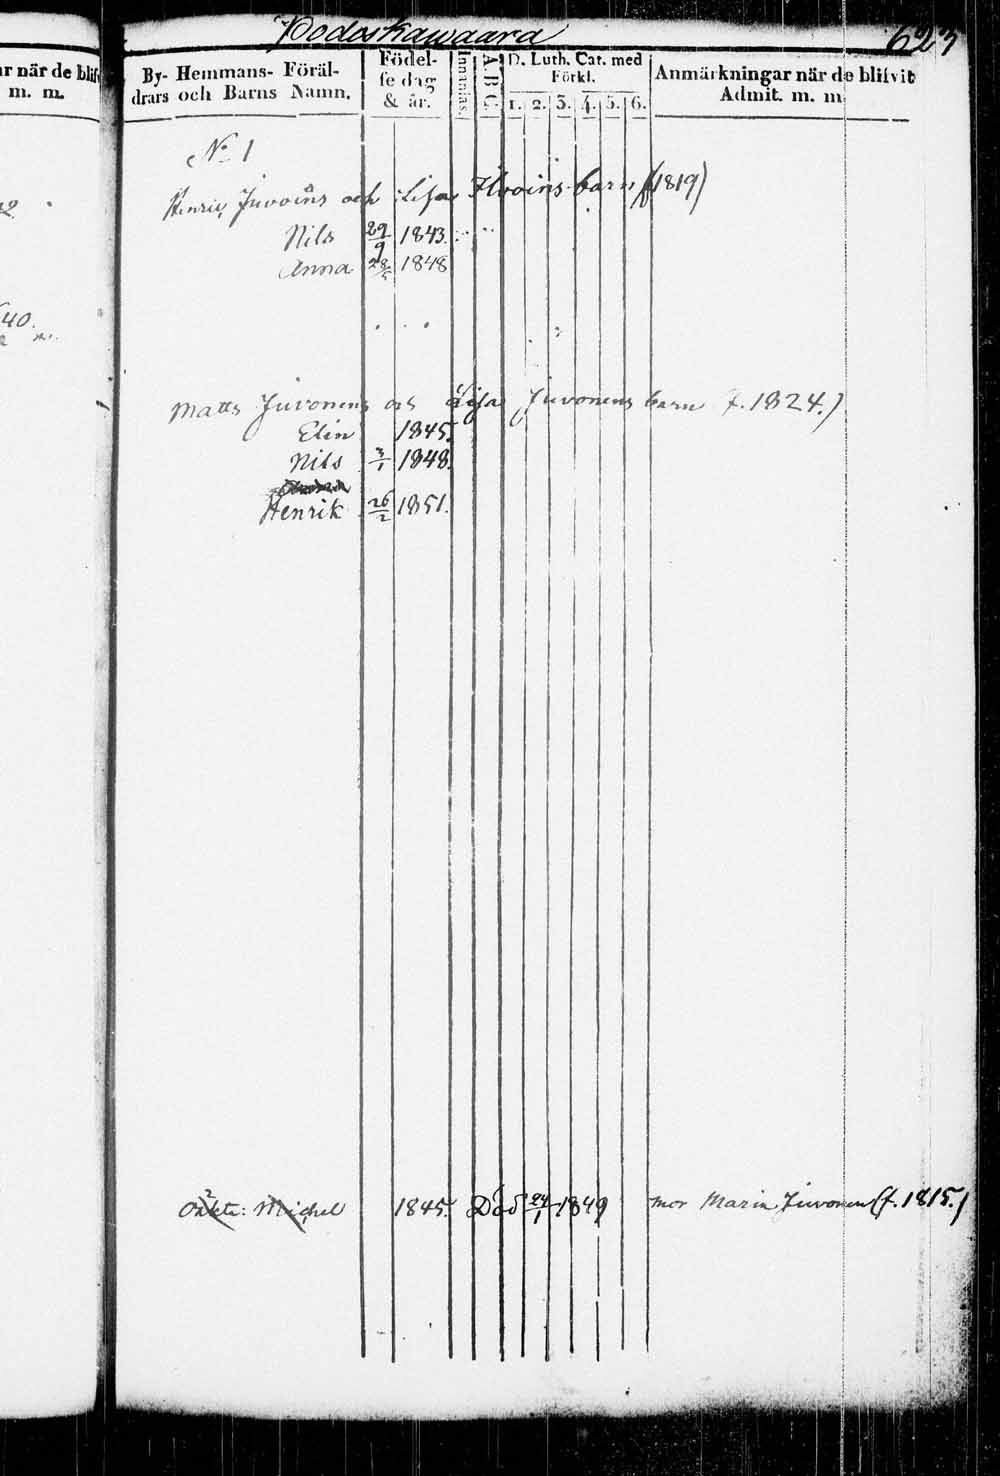 Podoskawaara 623
r när de blifv
m. m.
By- Hemmans- Föräl-
drars och Barns Namn.
Födel-
se dag
& år.
Innanläs.
A B C
D. Luth. Cat. med
Förkl.
1. 2. 3. 4. 5. 6.
Anmärkningar när de blifvit
Admit. m. m
No 1
Henric Juvoins och Lisa Ilvoins barn (f 1819)
Nils 29/9 1843.
Anna 28/5 1848
40.
Matts Juvonens och Lisa Juvonens barn f. 1824.)
Elin 1845.
Nils 3/1 1848.
Henrik 26/2 1851.
Oäkta: Michel 1845. Död 24/1 1849 mor Maria Juvonen (f. 1815.)